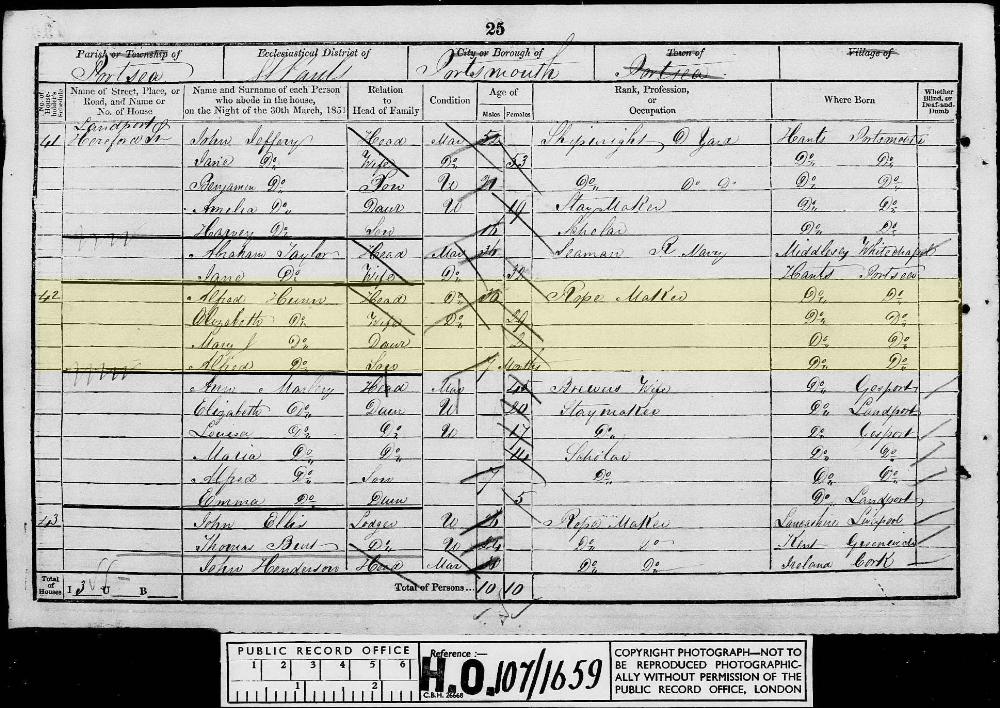 25
Parish or Township of Ecclesiastical District of City or Borough of Town of Village of
Portsea St Pauls Portsmouth Portsea
No. of Householder's Schedule Name of Street, Place, or Road, and Name or No. of House Name and Surname of each Person who abode in the house, on the Night of the 30th March, 1851 Relation to Head of Family Condition Age of Males Females Rank, Profession, or Occupation Where Born Whether Blind, or Deaf-and-Dumb
Landport
41 Hereford St John Jeffery Head Mar Shipwright D Yard Hants Portsmouth
Jane Do Wife Do 53 Do Do
Benjamin Do Son U 21 Do Do Do Do Do
Amelia Do Daur U 19 Stay Maker Do Do
Harvey Do Son 16 Scholar Do Do
Abraham Taylor Head Mar 36 Seaman R Navy Middlesex Whitechapel
Jane Do Wife Do Hants Portsea
42 Alfred Head Do Rope Maker Do Do
Elizabeth Do Wife Do 29 Do Do
Mary J Do Daur 2 Do Do
Alfred Do Son 7 Months Do Do
Ann Head Mar 42 Brewers Wife Do Gosport
Elizabeth Do Daur U 20 Staymaker Do Landport
Louisa Do Do U 17 Do Do Gosport
Maria Do Do 11 Scholar Do Do
Alfred Do Son 7 Do Do Do
Emma Do Daur 5 Do Landport
43 John Ellis Lodger U 26 Rope Maker Lancashire Liverpool
Thomas Bent Do U 24 Do Do Kent Greenwich
John Henderson Head Mar Do Do Ireland Cork
Total of Houses I 3 U B Total of Persons... 10 10
PUBLIC RECORD OFFICE
1 2 3 4 5 6
1 2
Reference :—
H.O. 107/1659
C.B.H. 26668
COPYRIGHT PHOTOGRAPH—NOT TO
BE REPRODUCED PHOTOGRAPHIC-
ALLY WITHOUT PERMISSION OF THE
PUBLIC RECORD OFFICE, LONDON